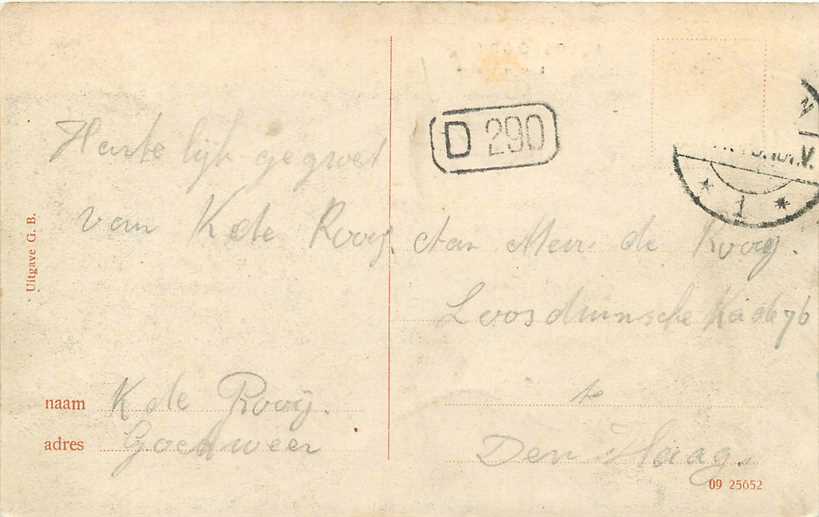 Harte lijk gegroet
van K de Rooij
Uitgave G. B.
naam K de Rooij.
adres
D 290
N
V.
1
Aan Men. de Rooij.
Loosduinsche Kade 76
te
Den Haag.
09 25652